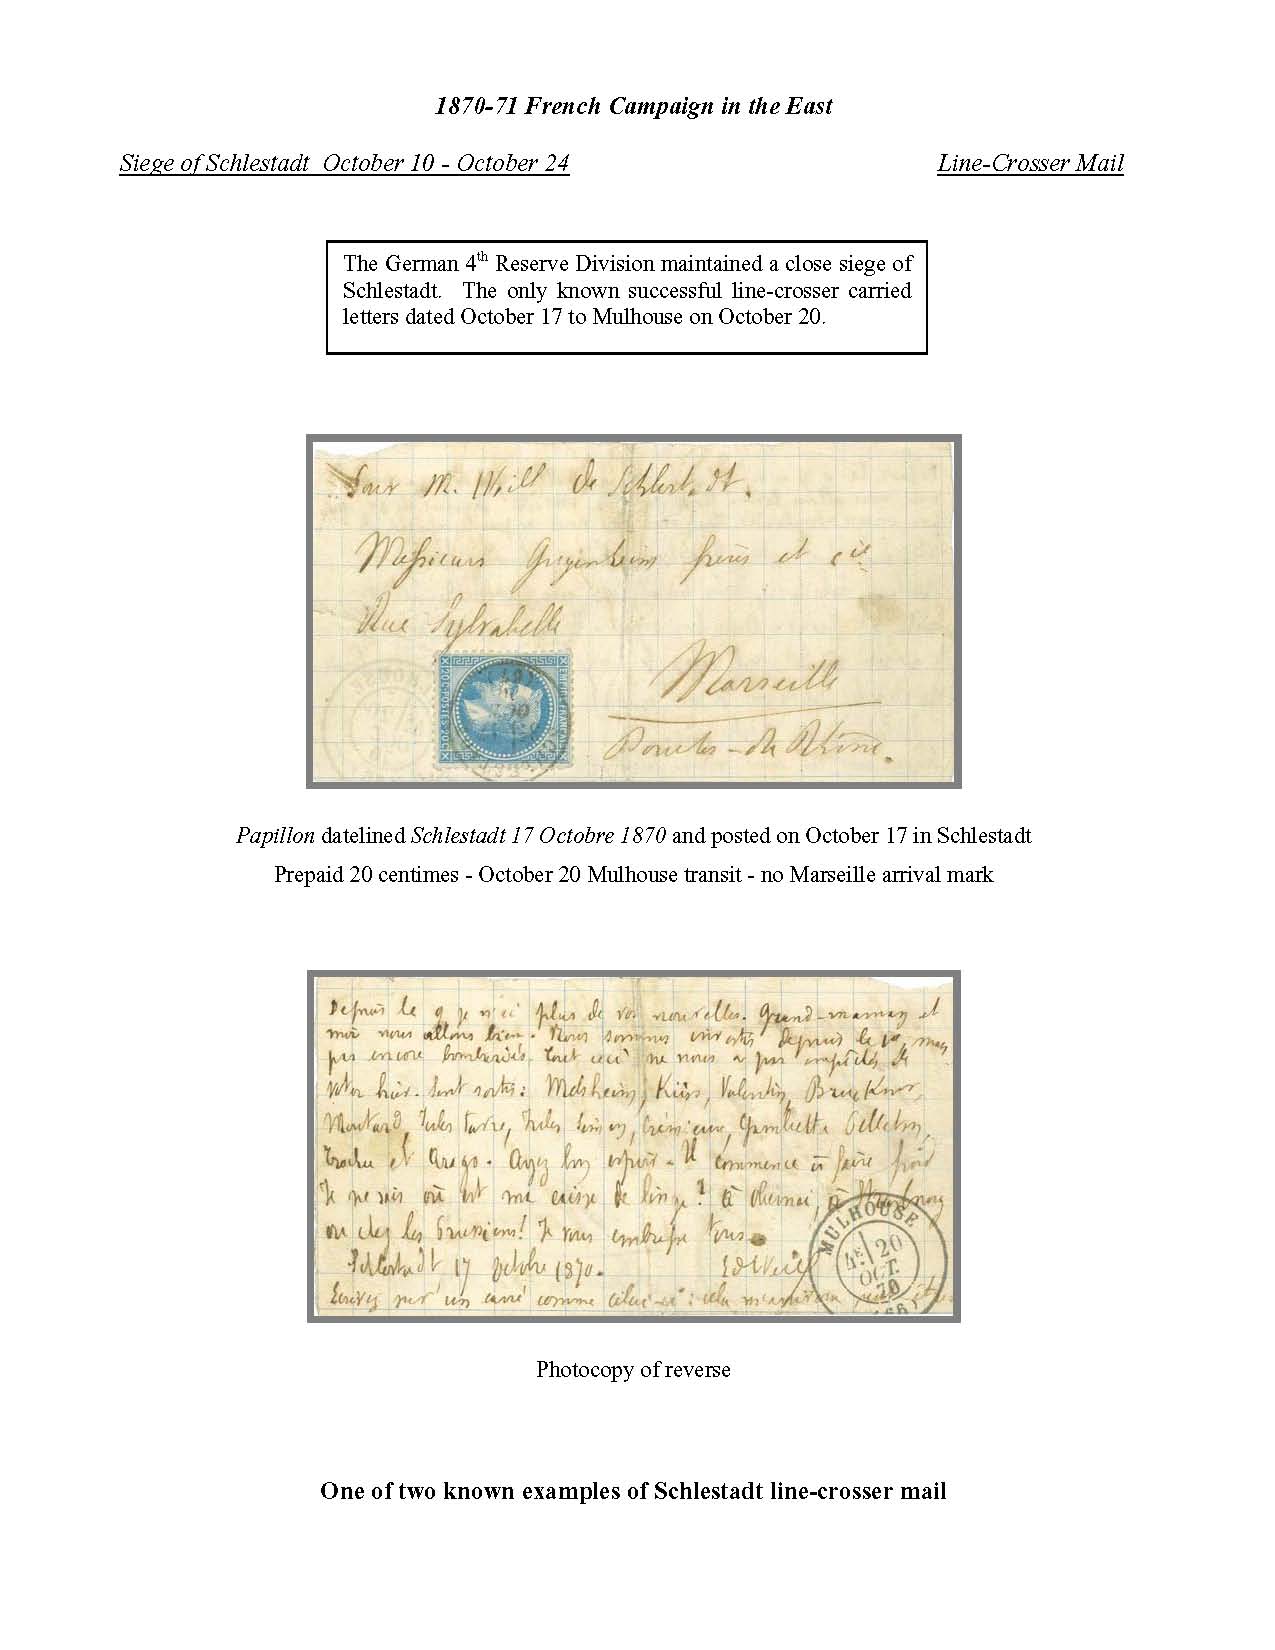 1870-71 French Campaign in the East
Siege of Schlestadt October 10 - October 24 Line-Crosser Mail
The German 4th Reserve Division maintained a close siege of
Schlestadt. The only known successful line-crosser carried
letters dated October 17 to Mulhouse on October 20.
Pour M. Weill de Schlestadt.
Messieurs frères et cie
Rue Sylvabelle
Marseille
Bouches-du-Rhône.
EMPIRE FRANÇAIS
20C POSTES 20C
Papillon datelined Schlestadt 17 Octobre 1870 and posted on October 17 in Schlestadt
Prepaid 20 centimes - October 20 Mulhouse transit - no Marseille arrival mark
Depuis le 9 je n'ai plus de vos nouvelles. Grand-maman et
moi nous allons bien. Nous sommes investis depuis le mais
pas encore bombardés. Tout ceci ne nous a pas empêchés de
voter hier. Sont sortis: Melsheim, Küss, Valentin, Bruckner,
Moutard, Jules Favre, Jules Simon, Crémieux, Gambetta, Pelletan,
Trochu et Arago. Ayez bon espoir - Il commence à faire froid
Je ne sais où est ma caisse de linge? à Obernai, à Strasbourg
ou chez les Prussiens! Je vous embrasse tous.
Schlestadt 17 Octobre 1870. EdWeill
Ecrivez sur un carré comme celui-ci: cela
MULHOUSE
4E 20
OCT.
70
(66)
Photocopy of reverse
One of two known examples of Schlestadt line-crosser mail